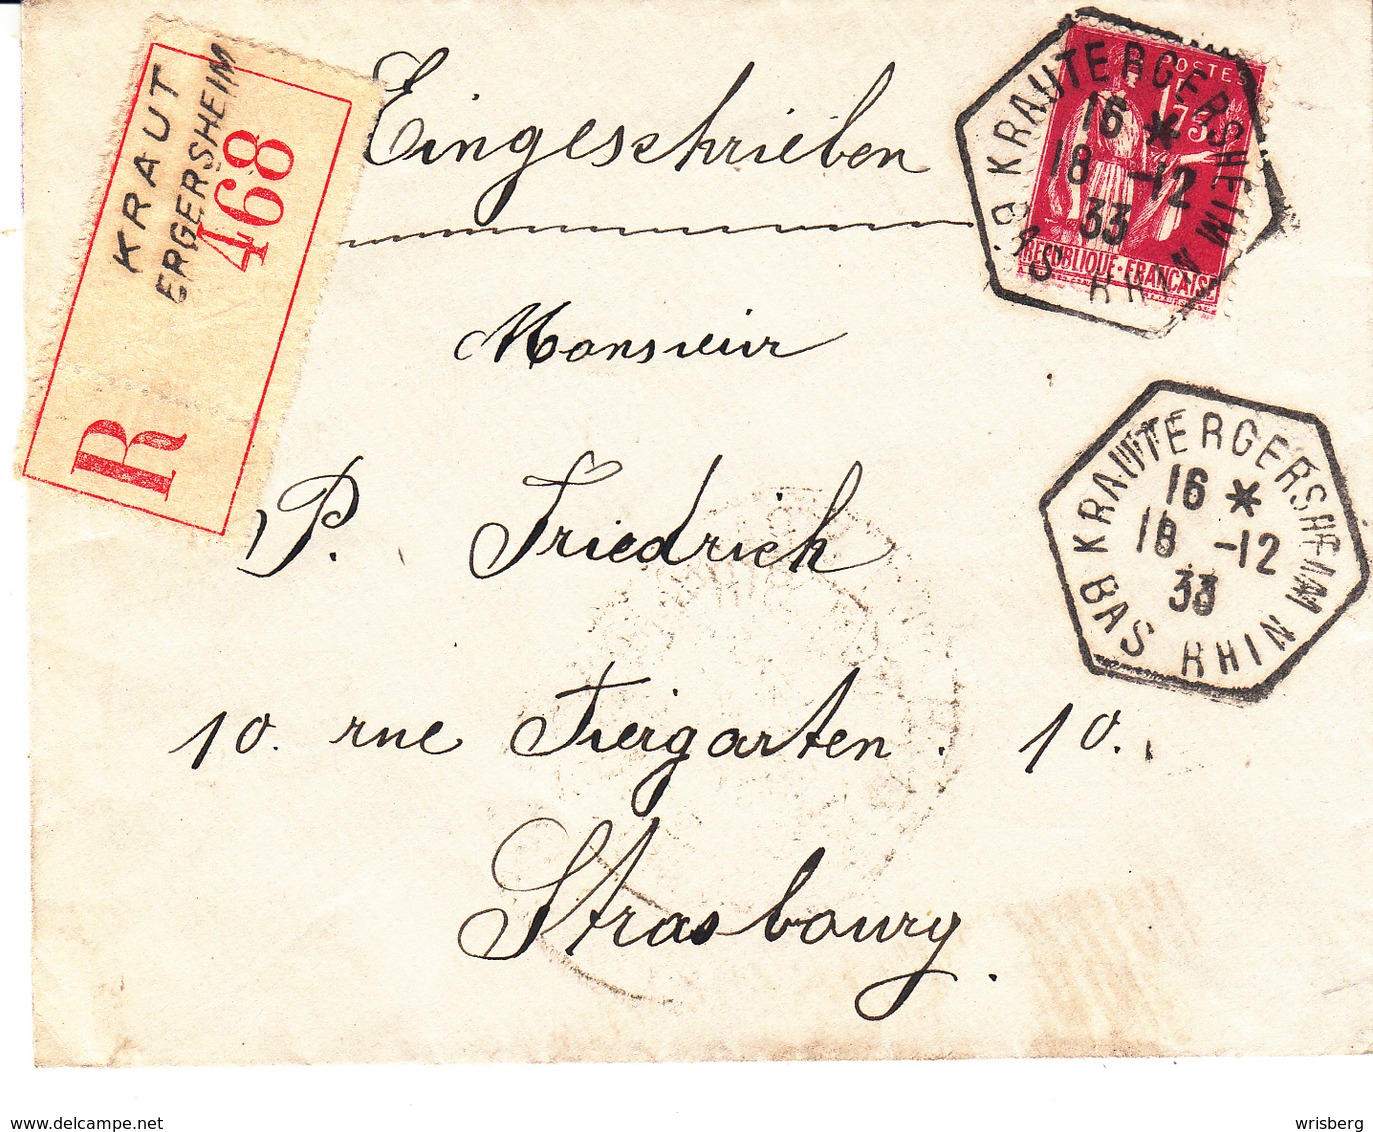 KRAUT
ERGERSHEIM
468
R
Eingeschrieben
POSTES
1F 75
REPUBLIQUE·FRANÇAISE
KRAUTERGERSHEIM
16 *
18 -12
33
BAS RHIN
Monsieur
KRAUTERGERSHEIM
16 *
18 -12
33
BAS RHIN
P. Friedrich
10. rue Tiergarten. 10.
Strasbourg.
delcampe.net
wrisberg